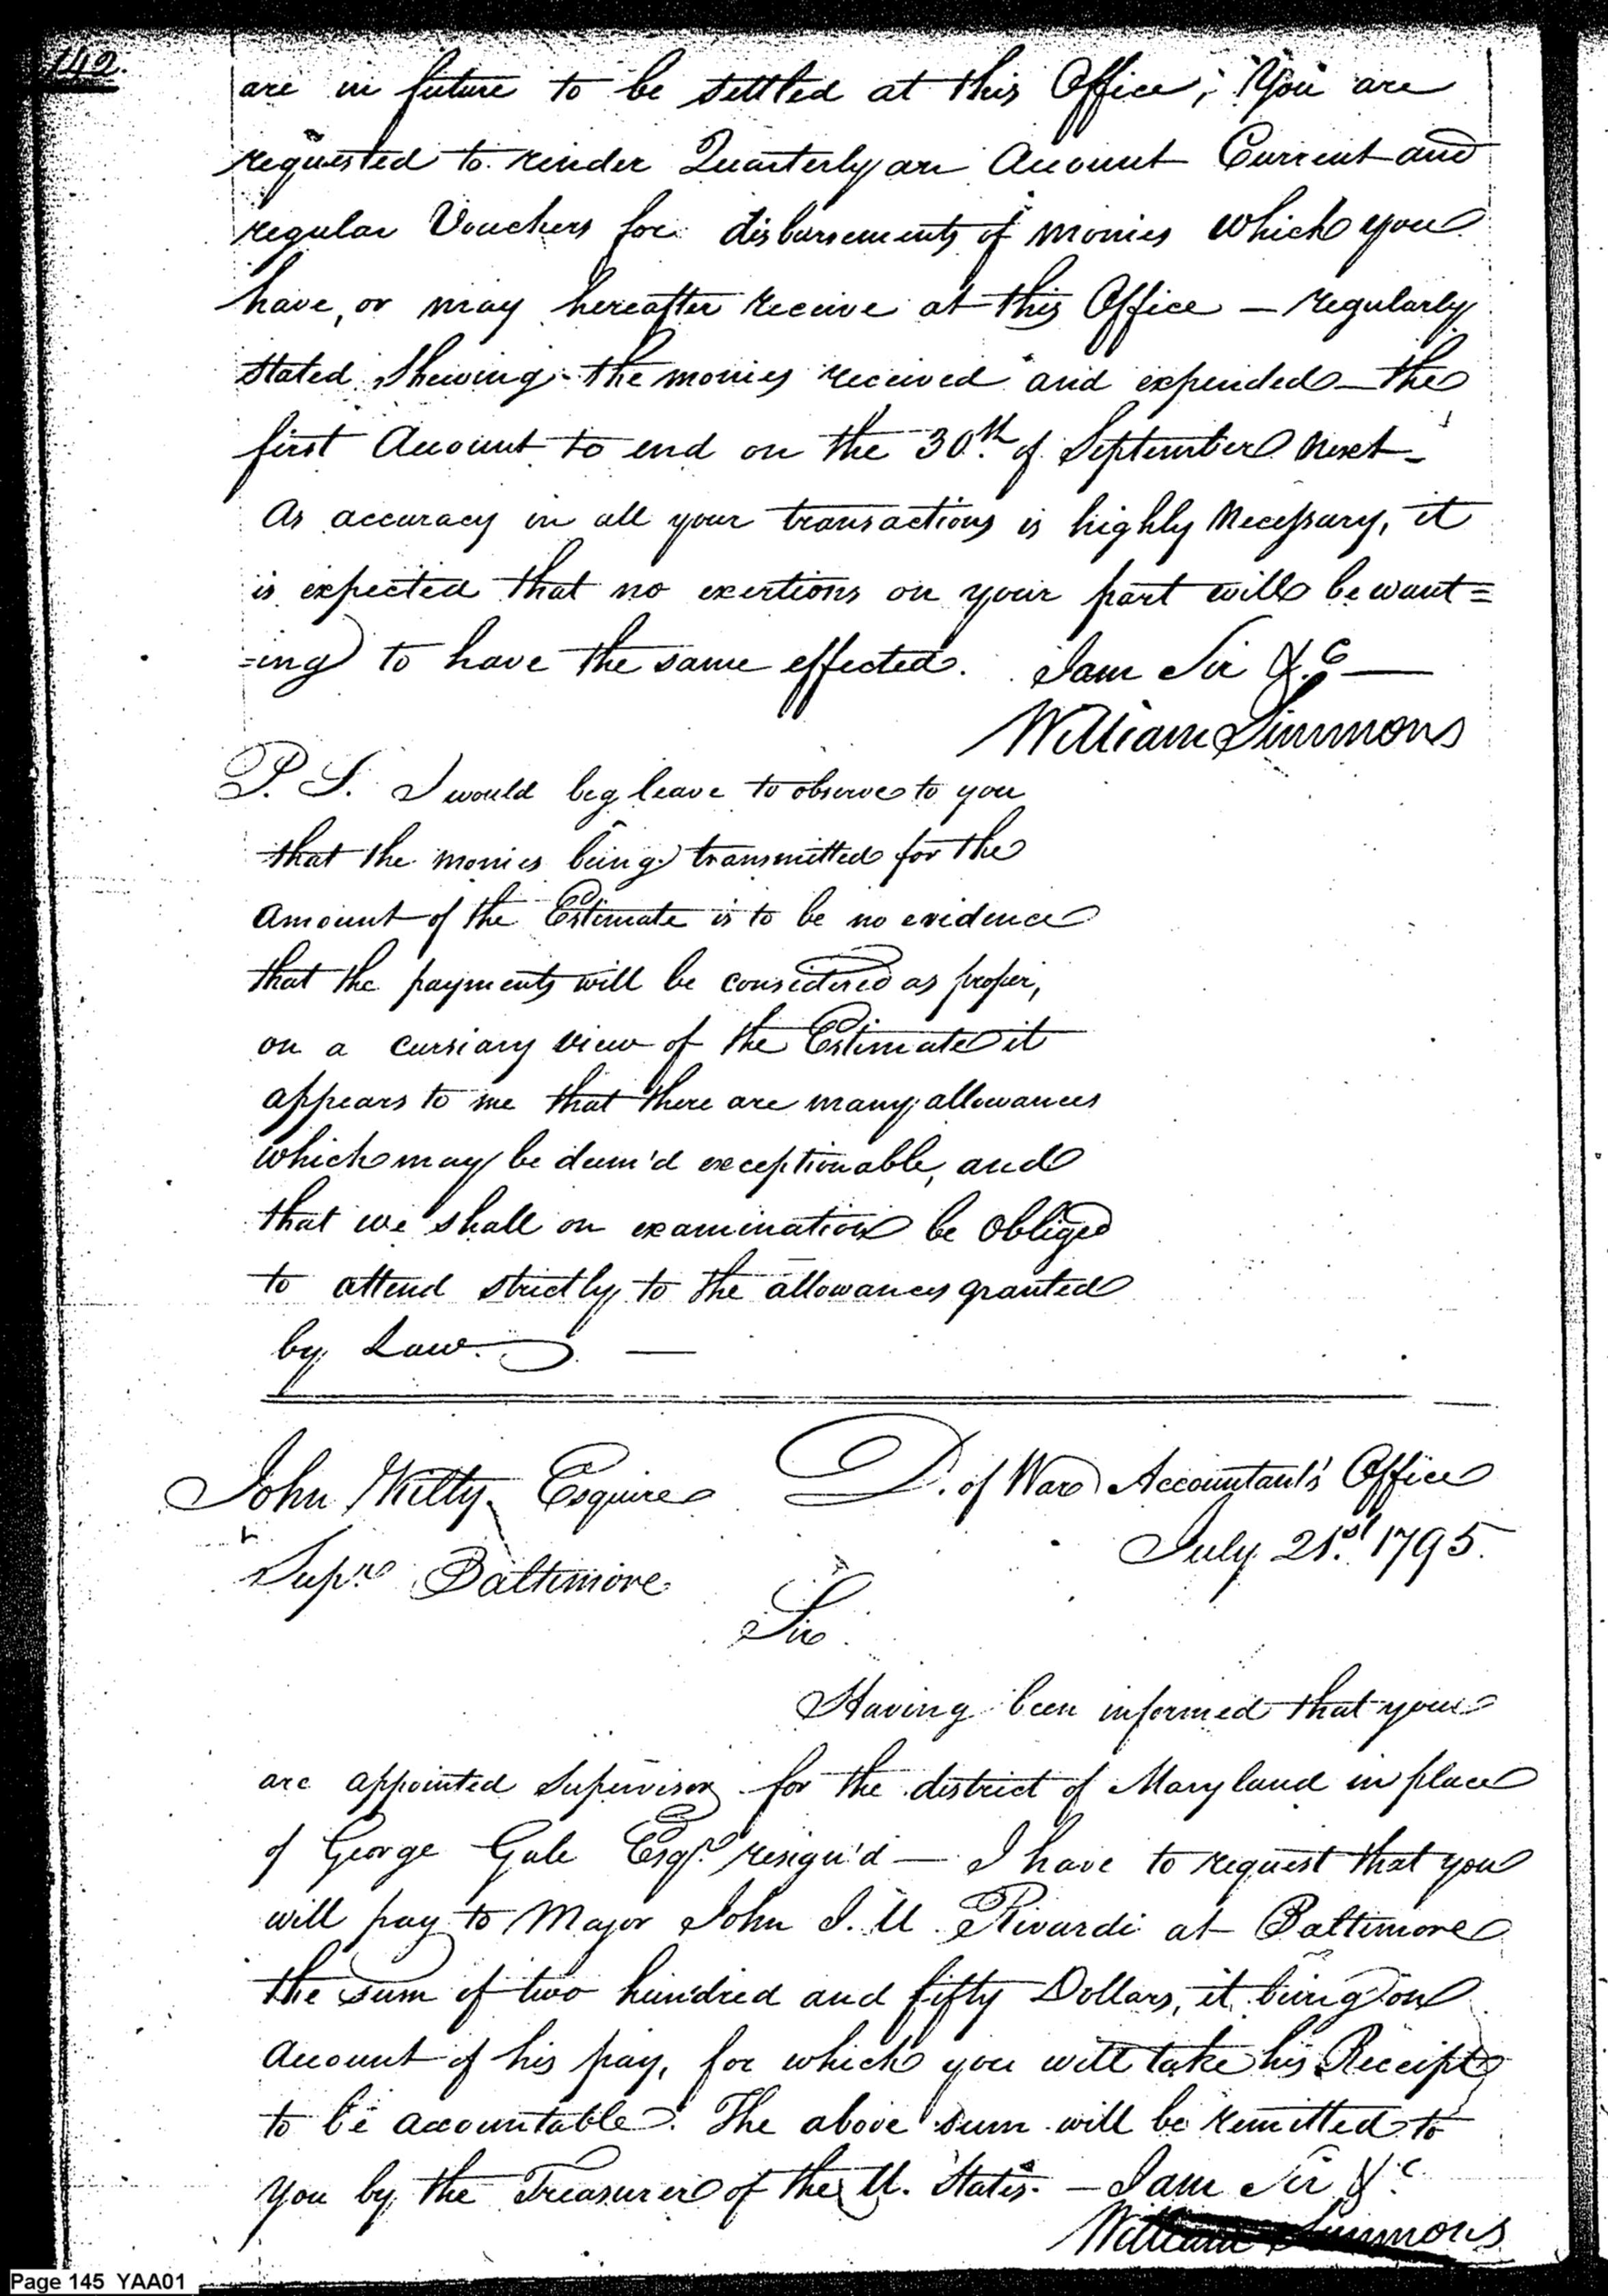 142.
are in future to be settled at this Office; You are
requested to render Quarterly an Account Current and
regular Vouchers for disbursements of monies which you
have, or may hereafter receive at this Office — regularly
stated, Shewing the monies received and expended — the
first Account to end on the 30th of September Next —
As accuracy in all your transactions is highly Necessary, it
is expected that no exertions on your part will be want=
=ing to have the same effected. I am Sir &c —
William Simmons
P. S. I would beg leave to observe to you
that the monies being transmitted for the
amount of the Estimate is to be no evidence
that the payments will be considered as proper,
on a cursiary view of the Estimate it
appears to me that there are many allowances
which may be deem'd exceptionable, and
that we shall on examination be Obliged
to attend strictly to the allowances granted
by Law. —
John Kilty Esquire D. of War Accountant's Office
July 21st 1795.
Supr Baltimore
Sir
Having been informed that you
are appointed Supervisor for the district of Maryland in place
of George Gale Esqr. resign'd — I have to request that you
will pay to Major John J. U. Rivardi at Baltimore
the sum of two hundred and fifty Dollars, it being on
Account of his pay, for which you will take his Receipt
to be accountable. The above sum will be remitted to
you by the Treasurer of the U. States. — I am Sir &c
William Simmons
Page 145 YAA01